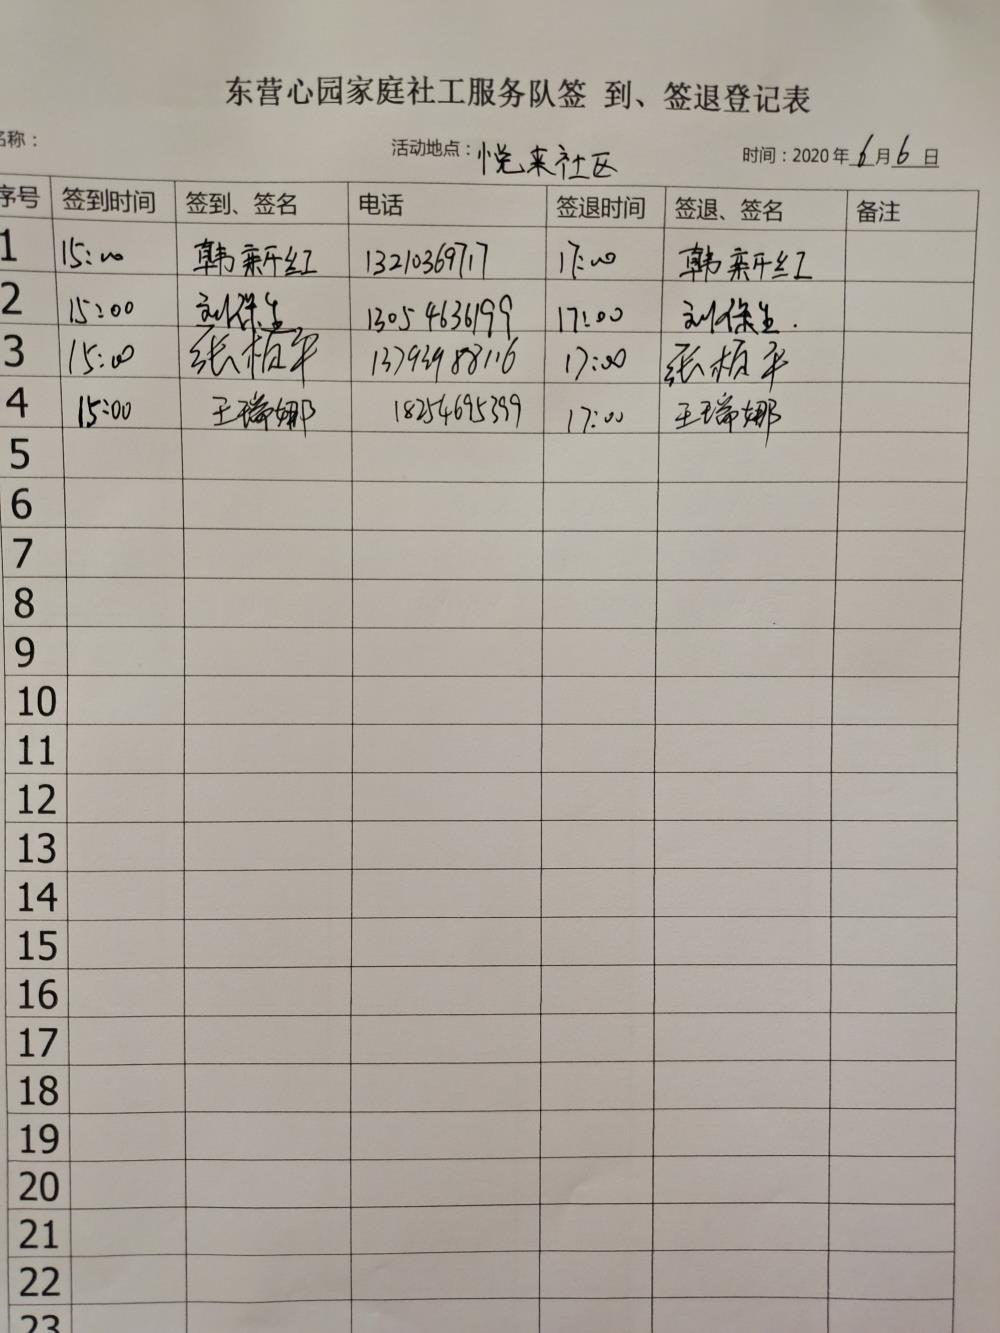 东营心园家庭社工服务队签 到、签退登记表
名称：  活动地点：悦来社区  时间：2020年6月6日
序号 签到时间 签到、签名 电话 签退时间 签退、签名 备注
1 15:00 韩 红 13210369717 17:00 韩 红
2 15:00 刘保生 13054636199 17:00 刘保生.
3 15:00 张植平 13793988116 17:00 张植平
4 15:00 王瑞娜 18254695399 17:00 王瑞娜
5
6
7
8
9
10
11
12
13
14
15
16
17
18
19
20
21
22
23